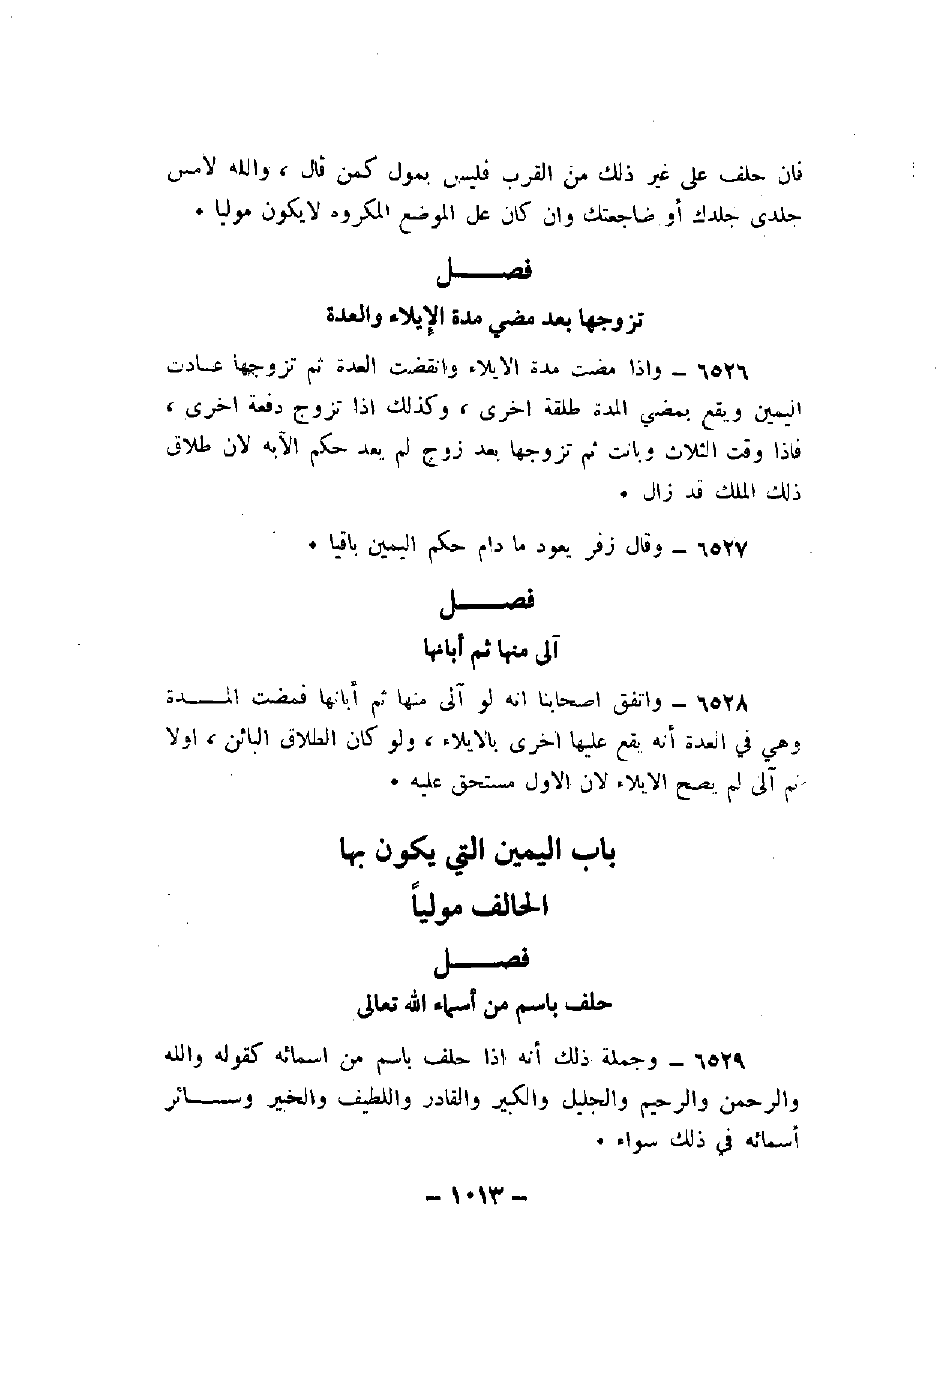 فان حلف على غير ذلك من القرب فليس بمول كمن قال ، والله لامس
جلدى جلدك أو ضاجعتك وان كان عل الموضع المكروه لايكون موليا ٠
فصـــــل
تزوجها بعد مضي مدة الإيلاء والعدة
٦٥٢٦ ــ واذا مضت مدة الايلاء وانقضت العدة ثم تزوجها عـادت
اليمين ويقع بمضي المدة طلقة اخرى ، وكذلك اذا تزوج دفعة اخرى ،
فاذا وقت الثلاث وبانت ثم تزوجها بعد زوج لم يعد حكم الآيه لان طلاق
ذلك الملك قد زال ٠
٦٥٢٧ ــ وقال زفر يعود ما دام حكم اليمين باقيا ٠
فصـــــل
آلى منها ثم أبانها
٦٥٢٨ ــ واتفق اصحابنا انه لو آلى منها ثم أبانها فمضت المـــدة
وهي في العدة أنه يقع عليها اخرى بالايلاء ، ولو كان الطلاق البائن ، اولا
ثم آلى لم يصح الايلاء لان الاول مستحق عليه ٠
باب اليمين التي يكون بها
الحالف مولياً
فصـــــل
حلف باسم من أسماء الله تعالى
٦٥٢٩ ــ وجملة ذلك أنه اذا حلف باسم من اسمائه كقوله والله
والرحمن والرحيم والجليل والكبير والقادر واللطيف والخبير وســـائر
أسمائه في ذلك سواء ٠
– ١٠١٣ –